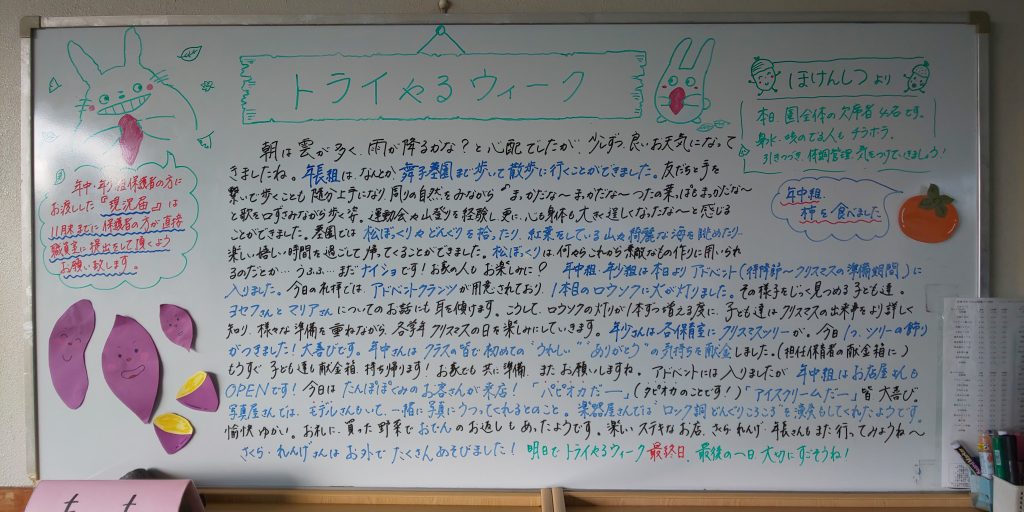 トライやるウィーク
ほけんしつより
本日、園全体の欠席者4名です。
鼻水・咳のでる人も チラホラ。
引きつづき、体調管理 気をつけていきましょう！
年中・年少組保護者の方に
お渡しした『現況届』は
11月末までに保護者の方が直接
職員室に提出をして頂くよう
お願い致します。
年中組、
柿を食べました
朝は雲が多く、雨が降るかな？と心配でしたが、少しずつ良いお天気になって
きましたね。年長組は、なんと、舞子墓園まで歩いて散歩に行くことができました。友だちと手を
繋いで歩くことも随分上手になり、周りの自然をみながら“まっかだな〜まっかだな〜つたの葉っぱもまっかだな〜”
と歌を口ずさみながら歩く姿。運動会や山登りを経験し、更に、心も身体も大きく逞しくなったな〜と感じる
ことができました。墓園では 松ぼっくりやどんぐりを拾ったり、紅葉をしている山や綺麗な海を眺めたり…
楽しい嬉しい時間を過ごして帰ってくることができました。松ぼっくりは、何やらこれから素敵なもの作りに用いられ
るのだとか…うふふ…まだナイショです！お家の人もお楽しみに♡ 年中組・年少組は本日よりアドベント(待降節〜クリスマスの準備期間)に
入りました。今日の礼拝では、アドベントクランツが用意されており、1本目のロウソクに火が灯りました。その様子をじっくり見つめる子ども達。
ヨセフさんとマリアさんについてのお話にも耳を傾けます。こうして、ロウソクの灯りが1本ずつ増える度に、子ども達はクリスマスの出来事をより詳しく
知り、様々な準備を重ねながら、各学年クリスマスの日を楽しみにしていきます。年少さんは各保育室にクリスマスツリーが。今日1つ、ツリーの飾り
がつきました！大喜びです。年中さんは クラスの皆で初めての“うれしい”“ありがとう”の気持ちを献金しました。(担任保育者の献金箱に)
もうすぐ 子ども達も献金箱、持ち帰ります！お家でも共に準備、またお願いしますね。アドベントには入りましたが 年中組はお店屋さんも
OPENです！今日は たんぽぽぐみのお客さんが来店！「パピオカだー」(タピオカのことです！)「アイスクリームだー」皆 大喜び。
写真屋さんでは、モデルさんもいて、一緒に写真にうつってくれるとのこと。楽器屋さんでは“ロック調どんぐりころころ”を演奏もしてくれたようです。
愉快ゆかい。お礼に、買った野菜でおでんのお返しもあったようです。楽しいステキなお店、さくら・れんげ・年長さんもまた行ってみようね〜
さくら・れんげさんは お外で たくさんあそびました！ 明日でトライやるウィーク 最終日。最後の一日 大切にすごそうね！